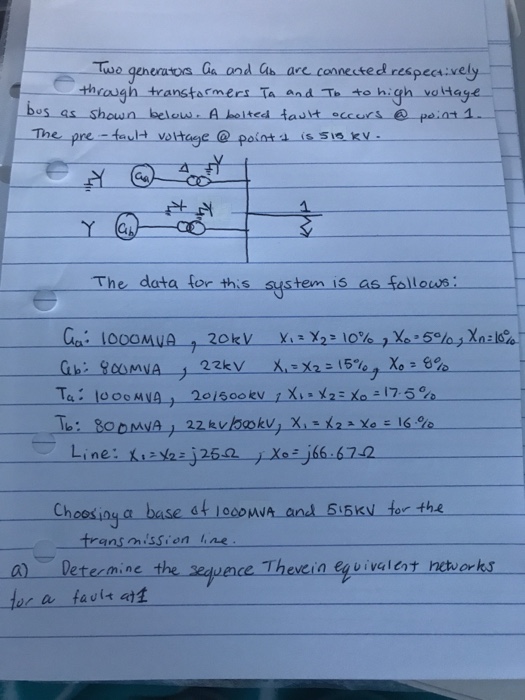 Two generators Ga and Gb are connected respectively
through transformers Ta and Tb to high voltage
bus as shown below. A bolted fault occurs @ point 1.
The pre-fault voltage @ point 1 is 515 kV.
Y Ga Δ Y
1
Y Gb Y Y
The data for this system is as follows:
Ga: 1000MVA, 20kV X₁ = X₂ = 10%, X₀ = 5%, Xn = 10%
Gb: 800MVA, 22kV X₁ = X₂ = 15%, X₀ = 8%
Ta: 1000MVA, 20/500kV, X₁ = X₂ = X₀ = 17.5%
Tb: 800MVA, 22kV/500kV, X₁ = X₂ = X₀ = 16.%
Line: X₁ = X₂ = j25Ω, X₀ = j66.67Ω
Choosing a base of 1000MVA and 515KV for the
transmission line.
a) Determine the sequence Thevein equivalent networks
for a fault at 1